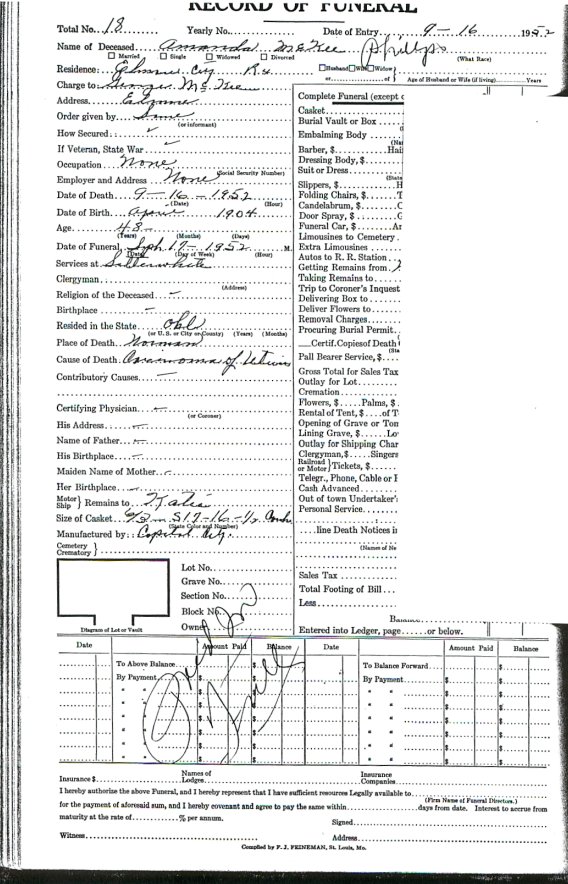 RECORD OF FUNERAL
Total No. 18 Yearly No. Date of Entry 9-16 1952
Name of Deceased Amanda McKee Phillips (What Race)
Married Single Widowed Divorced
Residence: City, R Husband Wife Widow
or of Age of Husband or Wife (if living) Years
Charge to George McKee
Address
Order given by Same
(or informant)
How Secured: ✓
If Veteran, State War ✓
Occupation None
(Social Security Number)
Employer and Address None
Date of Death 9-16-1952
(Date) (Hour)
Date of Birth 1904
Age 48-
(Years) (Months) (Days)
Date of Funeral Sept 17-1952 M.
(Date) (Day of Week) (Hour)
Services at Satterwhite
Clergyman
(Address)
Religion of the Deceased -
Birthplace -
Resided in the State Okl
(or U. S. or City or County) (Years) (Months)
Place of Death Norman
Cause of Death of Uterus
Contributory Causes -
Certifying Physician -
(or Coroner)
His Address -
Name of Father -
His Birthplace -
Maiden Name of Mother -
Her Birthplace -
Motor Ship } Remains to
Size of Casket 6/3
(State Color and Number)
Manufactured by: Capital City
Cemetery Crematory }
Lot No.
Grave No.
Section No.
Block No.
Owner
Diagram of Lot or Vault
Complete Funeral (except c
Casket
Burial Vault or Box
Embalming Body
Barber, $ Hai
Dressing Body, $
Suit or Dress
Slippers, $ H
Folding Chairs, $ T
Candelabrum, $ C
Door Spray, $ G
Funeral Car, $ Ar
Limousines to Cemetery
Extra Limousines
Autos to R. R. Station
Getting Remains from
Taking Remains to
Trip to Coroner's Inquest
Delivering Box to
Deliver Flowers to
Removal Charges
Procuring Burial Permit
Certif. Copies of Death
Pall Bearer Service, $
Gross Total for Sales Tax
Outlay for Lot
Cremation
Flowers, $ Palms, $
Rental of Tent, $ of T
Opening of Grave or Tom
Lining Grave, $ Lo
Outlay for Shipping Char
Clergyman, $ Singers
Railroad or Motor } Tickets, $
Telegr., Phone, Cable or
Cash Advanced
Out of town Undertaker'
Personal Service
line Death Notices i
(Names of Ne
Sales Tax
Total Footing of Bill
Less
Entered into Ledger, page or below.
Date Amount Paid Balance Date Amount Paid Balance
To Above Balance $ To Balance Forward $
By Payment $ By Payment $
Insurance $ Names of Lodges Insurance Companies
I hereby authorize the above Funeral, and I hereby represent that I have sufficient resources Legally available to
(Firm Name of Funeral Directors.)
for the payment of aforesaid sum, and I hereby covenant and agree to pay the same within days from date. Interest to accrue from
maturity at the rate of % per annum. Signed
Witness Address
Compiled by F. J. FEINEMAN, St. Louis, Mo.